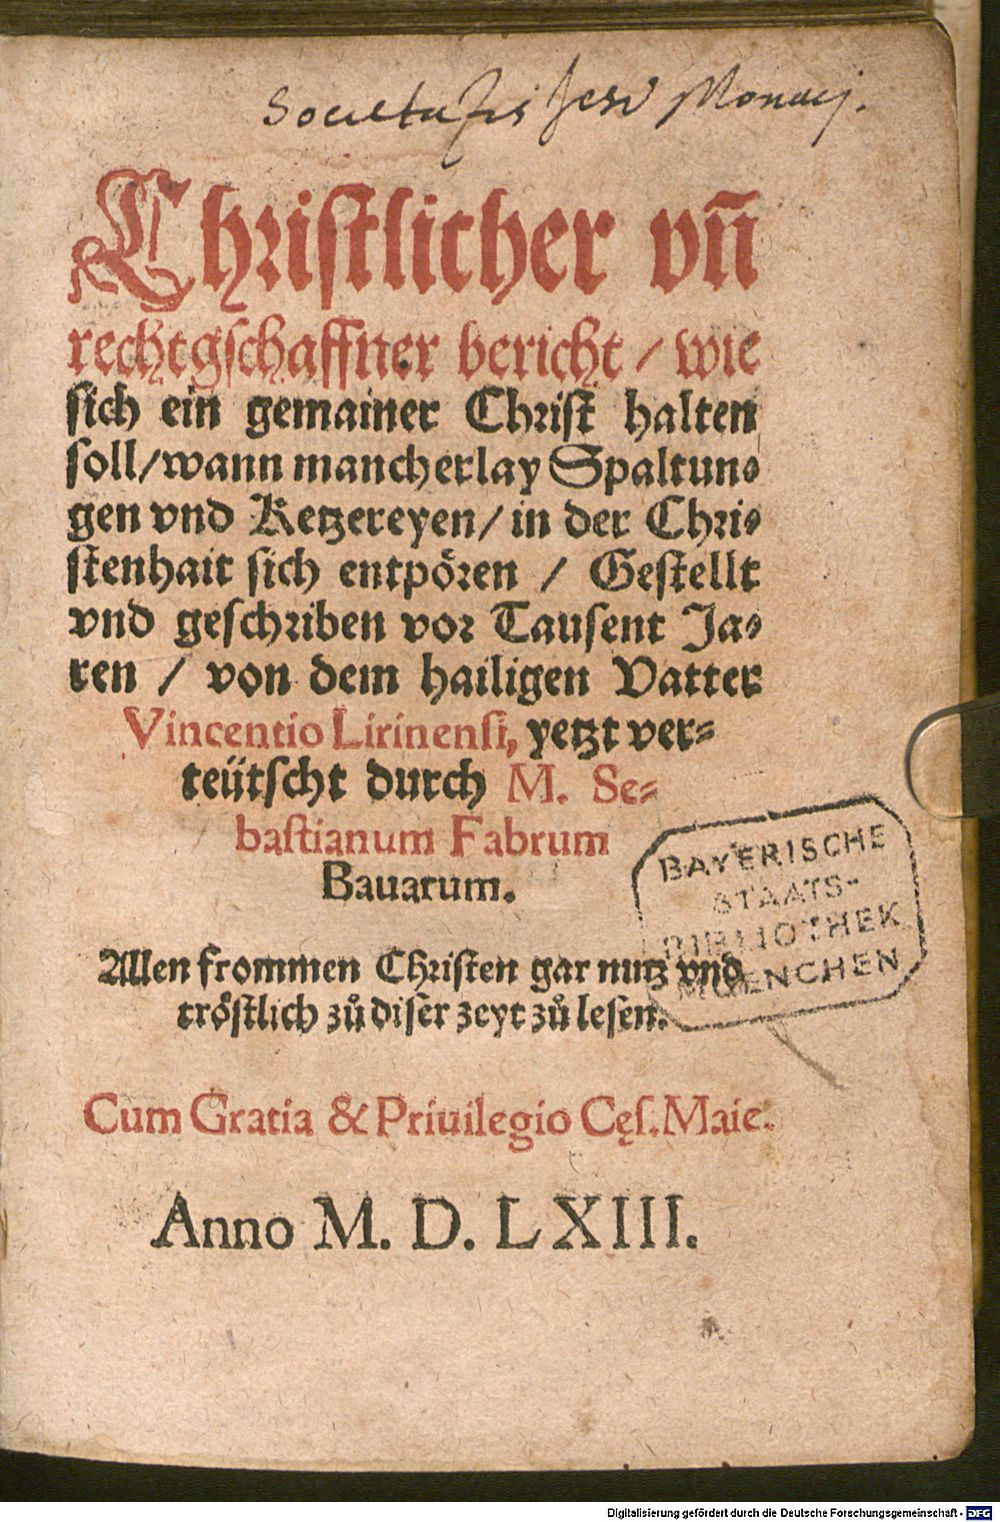 Societatis Jesu Monacij.
Christlicher vñ
rechtgschaffner bericht / wie
sich ein gemainer Christ halten
soll/wann mancherlay Spaltun⸗
gen vnd Ketzereyen/ in der Chri⸗
stenhait sich entpören / Gestellt
vnd geschriben vor Tausent Ja⸗
ren / von dem hailigen Vatter
Vincentio Lirinensi, yetzt ver⸗
teütscht durch M. Se⸗
bastianum Fabrum
Bauarum.
Allen frommen Christen gar nutz vnd
tröstlich zů diser zeyt zů lesen.
Cum Gratia & Priuilegio Cęs. Maie.
Anno M. D. LXIII.
BAYERISCHE
STAATS-
BIBLIOTHEK
MUENCHEN
Digitalisierung gefördert durch die Deutsche Forschungsgemeinschaft - DFG